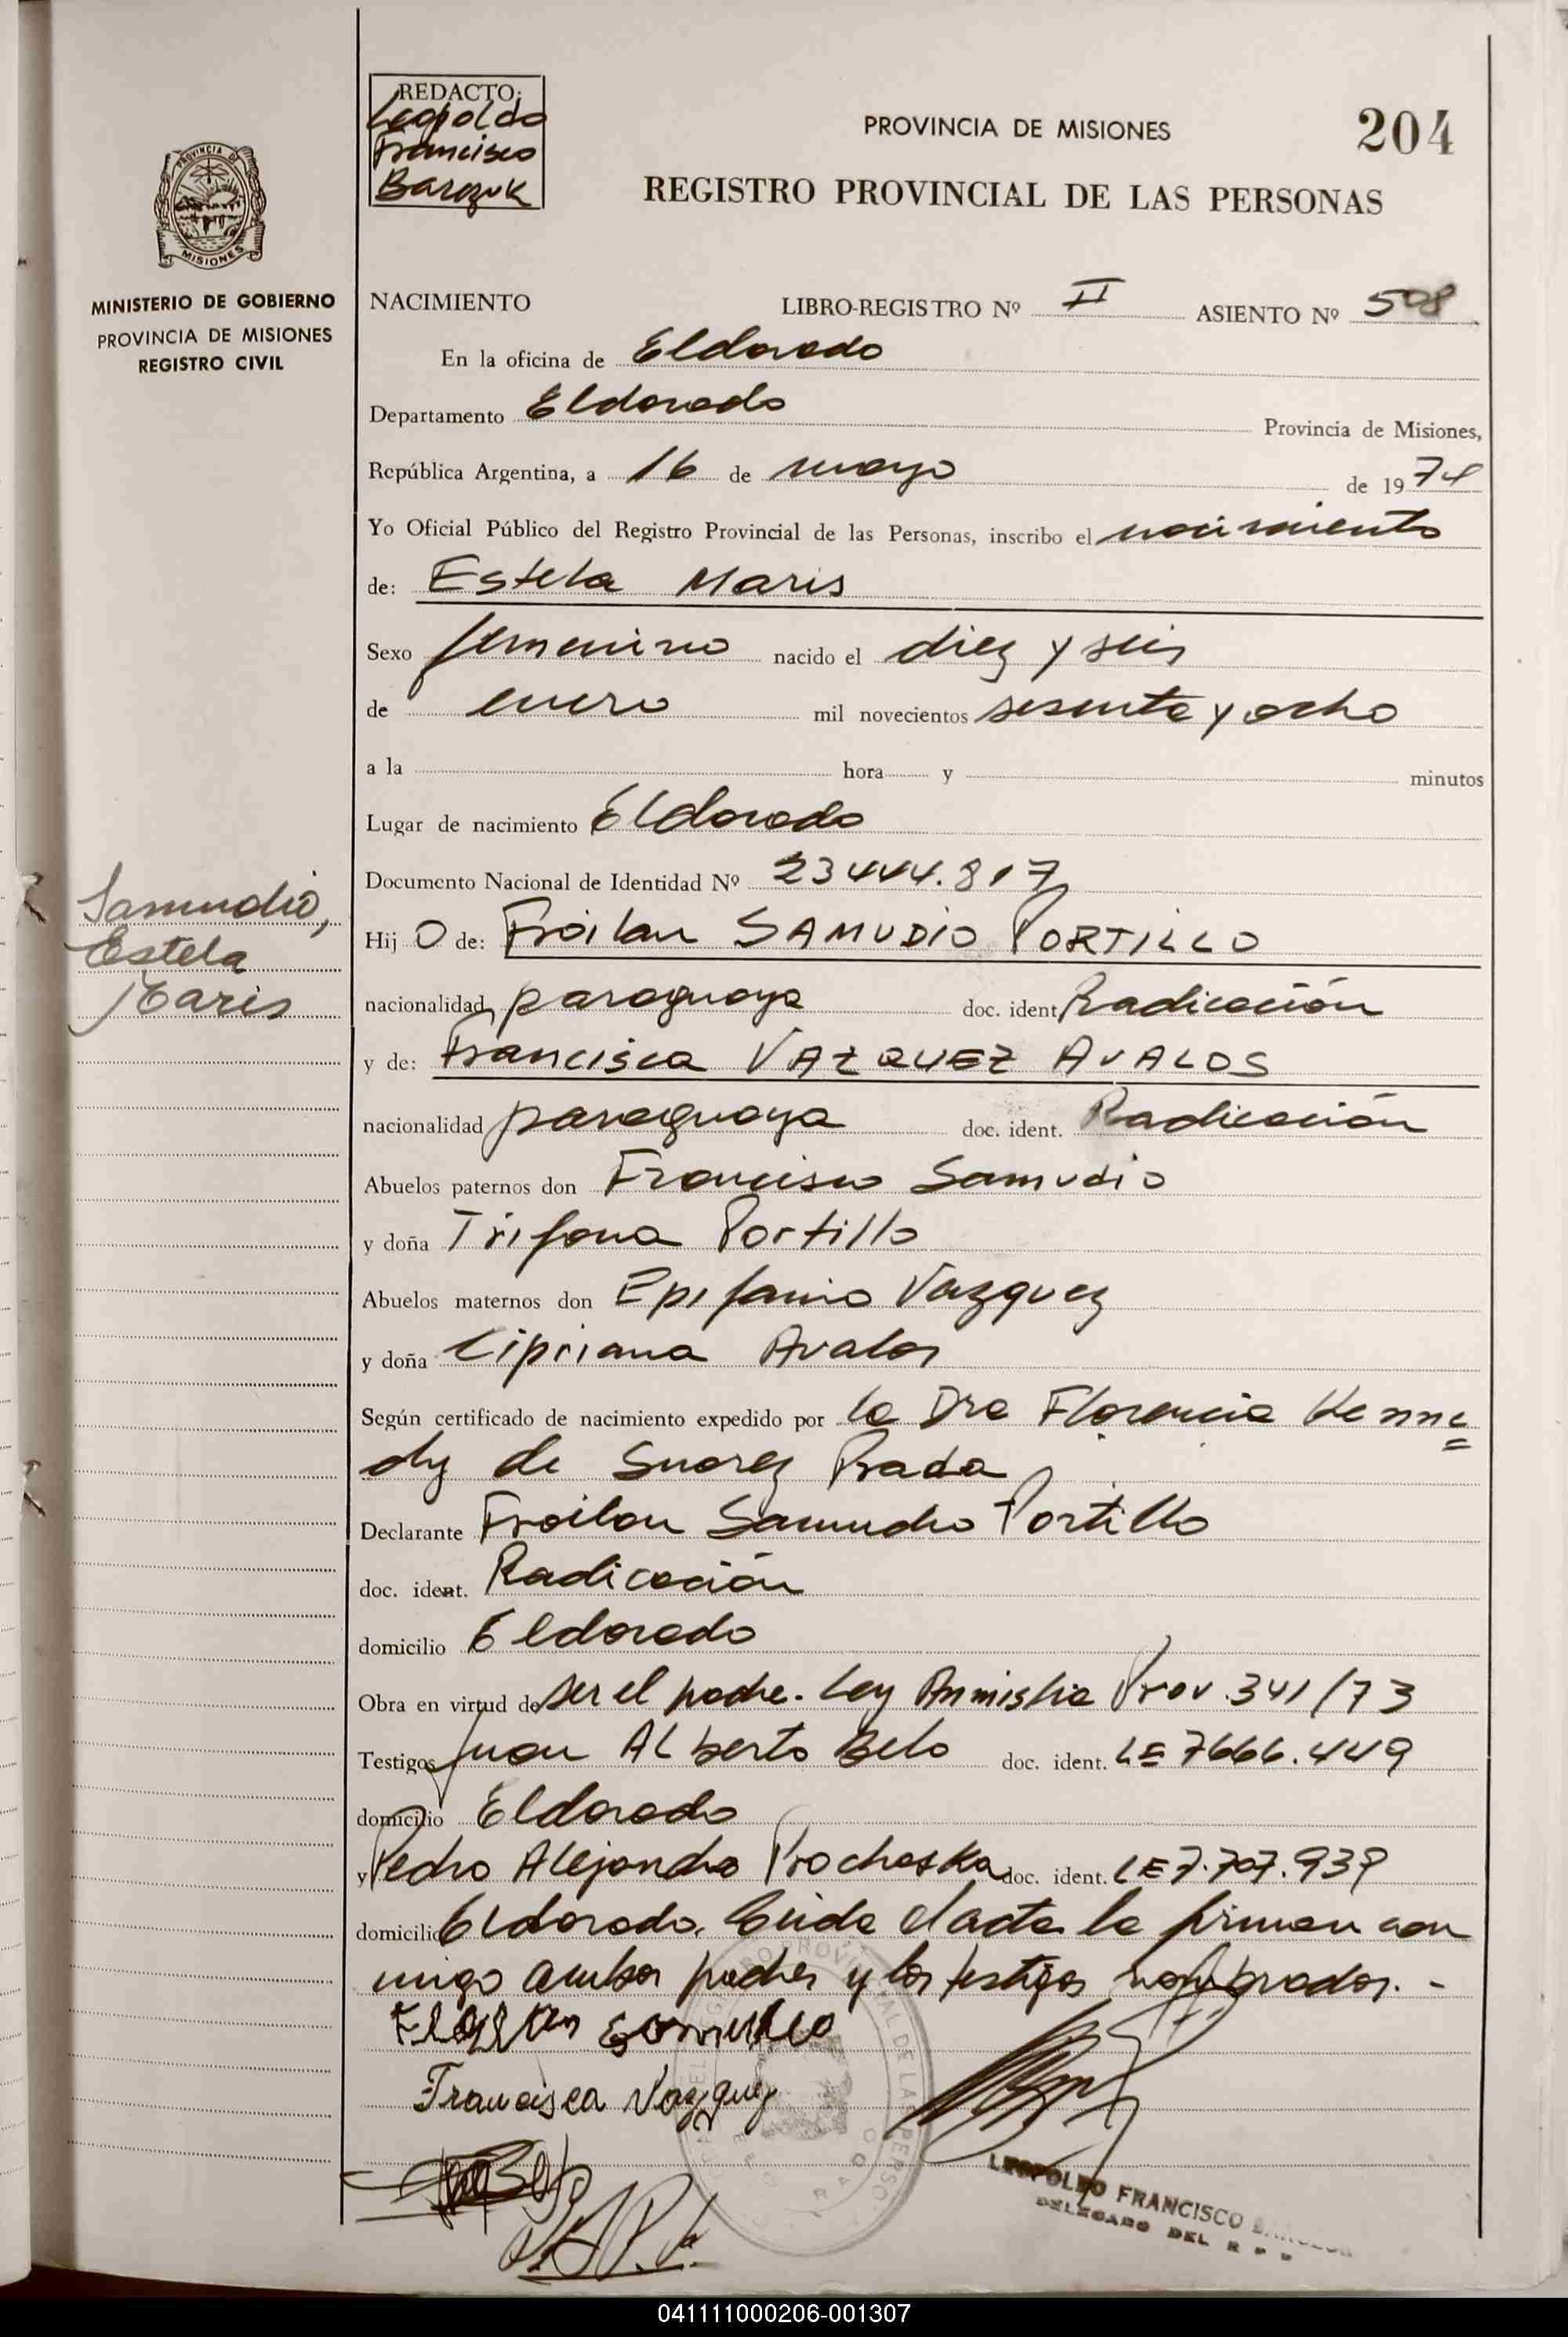 REDACTO:
Leopoldo
Francisco
Barczuk
PROVINCIA DE MISIONES
204
REGISTRO PROVINCIAL DE LAS PERSONAS
PROVINCIA DE
MISIONES
MINISTERIO DE GOBIERNO
PROVINCIA DE MISIONES
REGISTRO CIVIL
NACIMIENTO LIBRO-REGISTRO Nº II ASIENTO Nº 508
En la oficina de Eldorado
Departamento Eldorado Provincia de Misiones,
República Argentina, a 16 de mayo de 1974
Yo Oficial Público del Registro Provincial de las Personas, inscribo el nacimiento
de: Estela Maris
Sexo femenino nacido el diez y seis
de enero mil novecientos sesenta y ocho
a la hora y minutos
Lugar de nacimiento Eldorado
Documento Nacional de Identidad Nº 23444.817
Samudio,
Estela
Maris
Hij O de: Froilan SAMUDIO PORTILLO
nacionalidad paraguaya doc. ident. Radicación
y de: Francisca VAZQUEZ AVALOS
nacionalidad paraguaya doc. ident. Radicación
Abuelos paternos don Francisco Samudio
y doña Trifona Portillo
Abuelos maternos don Epifanio Vazquez
y doña Cipriana Avalos
Según certificado de nacimiento expedido por la Dra Florencia Kenne
dy de Suarez Prada
Declarante Froilan Samudio Portillo
doc. ident. Radicación
domicilio Eldorado
Obra en virtud de ser el padre. Ley Amnistia Prov. 341/73
Testigos Juan Alberto Belo doc. ident. LE 7666.449
domicilio Eldorado
y Pedro Alejandro Prochaska doc. ident. LE 7.707.939
domicilio Eldorado. Leida el acta la firman con
migo ambos padres y los testigos nombrados. -
Samudio
Francisca Vazquez
LEOPOLDO FRANCISCO
DELEGADO DEL R P P
041111000206-001307